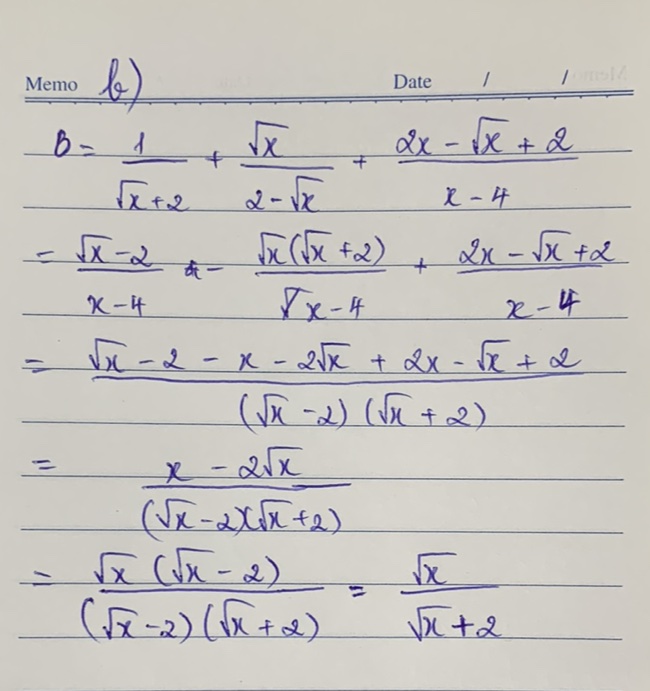 Memo b) Date / /
B = 1/(√x + 2) + √x/(2 - √x) + (2x - √x + 2)/(x - 4)
= (√x - 2)/(x - 4) - √x(√x + 2)/(x - 4) + (2x - √x + 2)/(x - 4)
= (√x - 2 - x - 2√x + 2x - √x + 2)/((√x - 2)(√x + 2))
= (x - 2√x)/((√x - 2)(√x + 2))
= √x(√x - 2)/((√x - 2)(√x + 2)) = √x/(√x + 2)